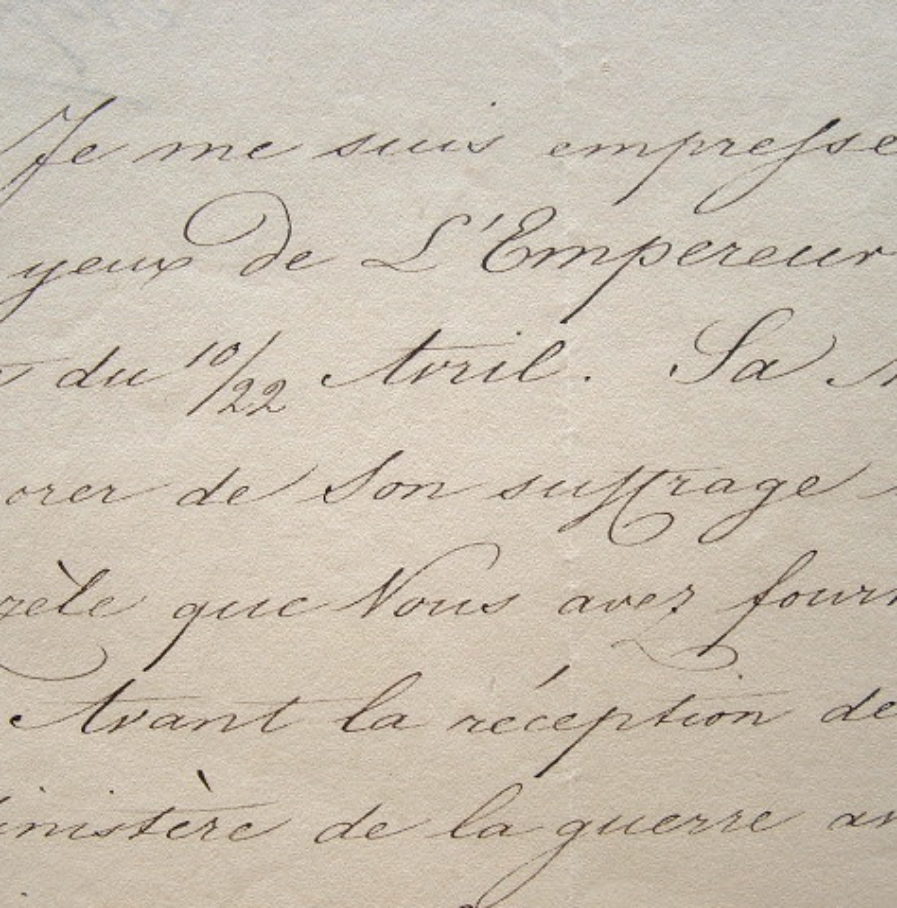 Je me suis empresse
yeux de L'Empereur
du 10/22 Avril. Sa
orer de Son suffrage
zèle que Vous avez fourn
Avant la réception de
inistère de la guerre av